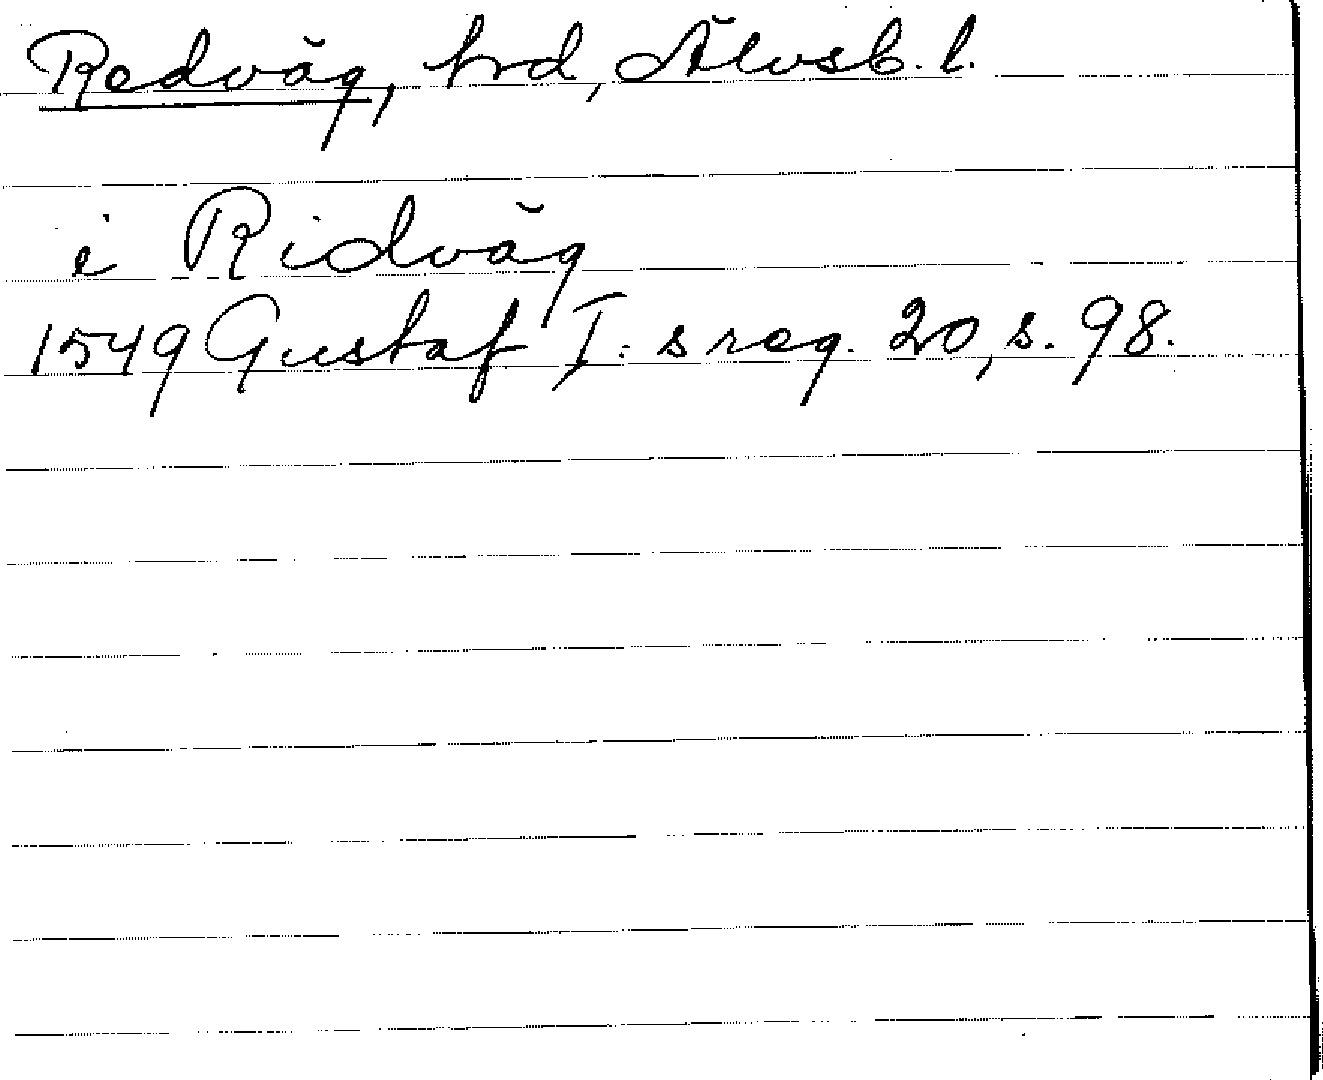 Redväg, hrd, Älvsb. l.
i Ridväg
1549 Gustaf I: s reg. 20, s. 98.